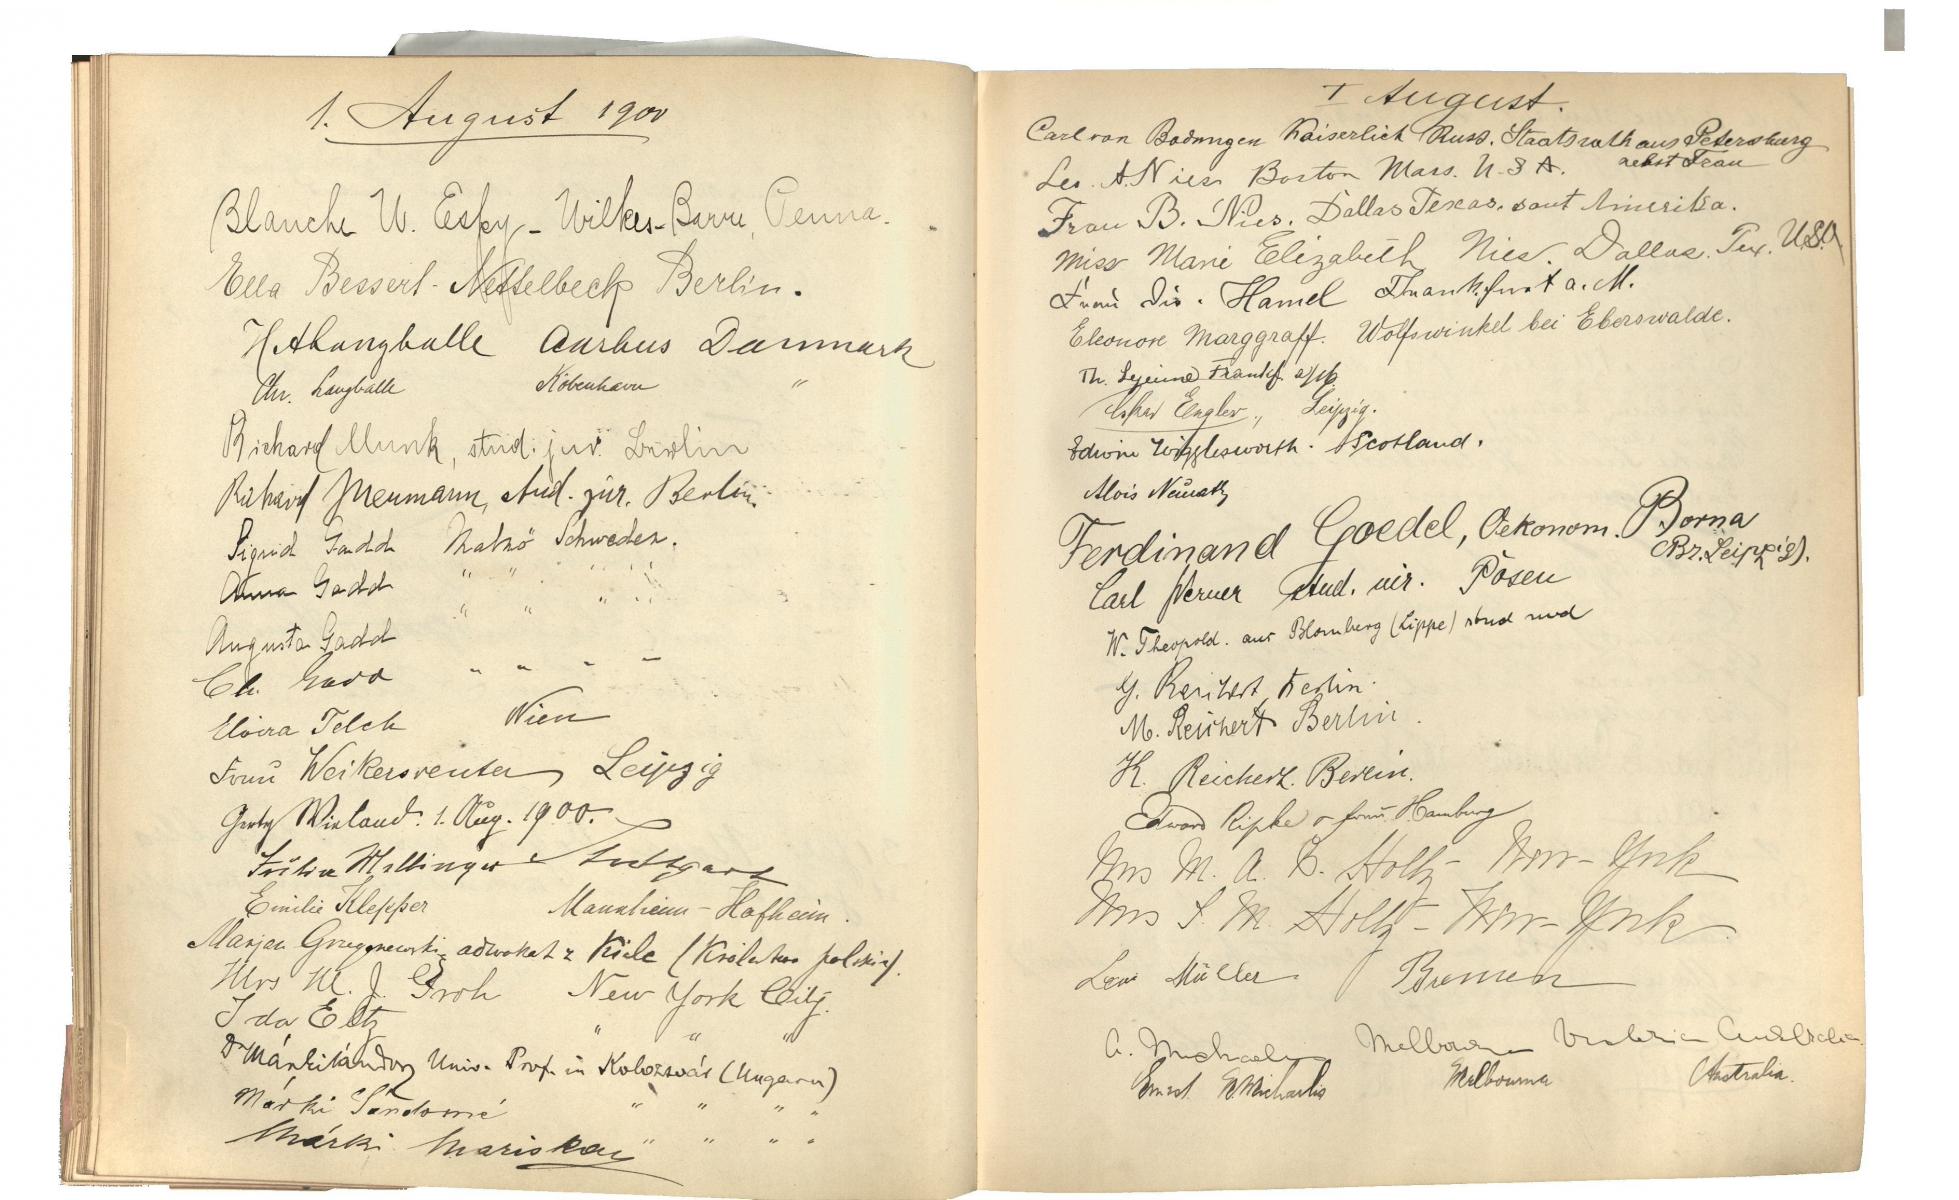 1. August 1900
Blanche W. Espy - Wilkes-Barre, Penna.
Ella Bessert-Nettelbeck Berlin.
Langballe Aarhus Danmark
Chr. Langballe København "
Richard Munk, stud. jur. Berlin
Richard Neumann, stud. jur. Berlin.
Sigrid Gadd Malmö Schweden.
Anna Gadd " " " "
Augusta Gadd " " "
Ch. Gadd " " " "
Elvira Telch Wien
Frau Weikersreuter, Leipzig
Wieland. 1. Aug. 1900.
Stuttgart
Emilie Klepper Mannheim - Hofheim.
Marjan Grzegorzewski, adwokat z Kielc (Królestwo polskie).
Mrs M. J. Groh New York City.
Ida Eltz " " "
Dr Márki Sándor Univ. Prof. in Kolozsvár (Ungarn)
Márki Sándorné " " " "
Márki Mariska " " " "
1 August.
Carl von Badungen Kaiserlich Russ. Staatsrath aus Petersburg
nebst Frau
A. Nies Boston Mass. U. S A.
Frau B. Nies. Dallas Texas. Amerika.
Miss Marie Elizabeth Nies. Dallas. Tex. U.S.A
Frau Dir. Hamel Frankfurt a. M.
Eleonore Marggraff. Wolfswinkel bei Eberswalde.
Th. Lejeune Frankf. a/M.
Engler, Leipzig.
Edwin Wigglesworth. Scotland.
Alois Neurath
Ferdinand Goedel, Oekonom. Borna
(Bz. Leipzig).
Carl Werner stud. Posen
W. Theopold. aus Blomberg (Lippe) stud med
G. Reichert, Berlin.
M. Reichert Berlin.
K. Reichert. Berlin.
Edward Ripke u Frau. Hamburg
Mrs M. A. Holtz - New-York
Mrs S. M. Holtz - New-York
Müller Bremen
A. Michaelis Melbourne Victoria Australia.
Ernest Michaelis Melbourne Australia.